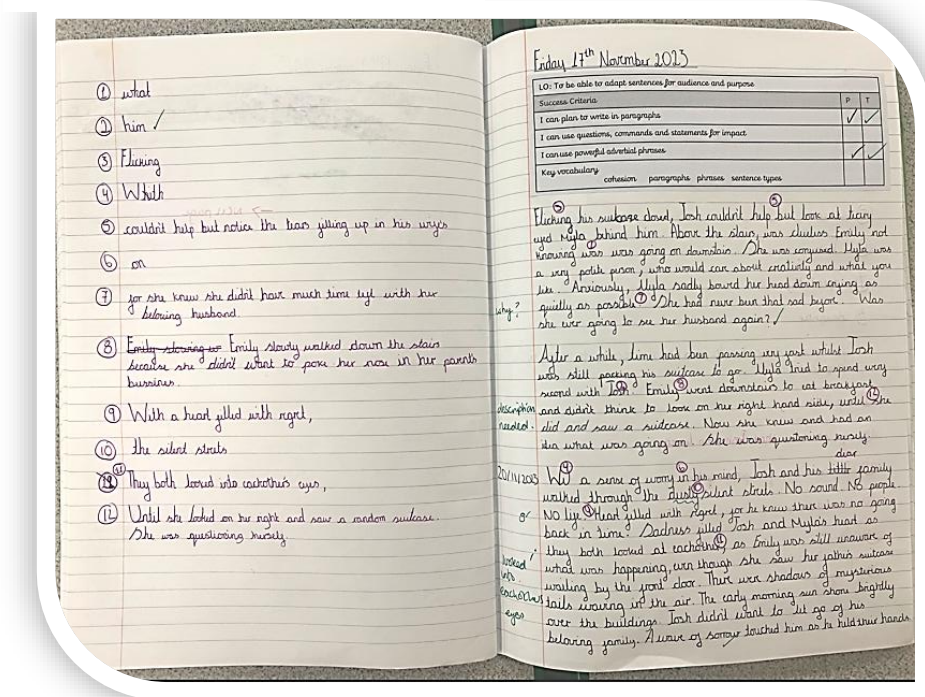 ① what
② him ✓
③ Flicking
④ Whith
⑤ couldn't help but notice the tears filling up in his wify's
⑥ on
⑦ for she knew she didn't have much time left with her
beloving husband.
⑧ Emily slowly walked down the stairs
because she didn't want to poke her nose in her parents
bussines.
⑨ With a heart filled with regret,
⑩ the silent streets
⑪ They both looked into eachother's eyes,
⑫ Until she looked on her right and saw a random suitcase.
She was questioning herself.
Friday 17th November 2023
LO: To be able to adapt sentences for audience and purpose
Success Criteria P T
I can plan to write in paragraphs ✓ ✓
I can use questions, commands and statements for impact
I can use powerful adverbial phrases ✓ ✓
Key vocabulary
cohesion paragraphs phrases sentence types
Flicking his suitcase closed, Josh couldn't help but look at teary
eyed Myla behind him. Above the stairs, was clueless Emily not
knowing was was going on downstairs. She was confused. Myla was
a very polite person, who would care about creativity and what you
like. Anxiously, Myla sadly bowed her head down crying as
why? quietly as possible. ⑦ She had never been that sad before. Was
she ever going to see her husband again? ✓
After a while, time had been passing very fast whilst Josh
was still packing his suitcase to go. Myla tried to spend every
second with Josh. Emily ⑧ went downstairs to eat breakfast,
description and didn't think to look on her right hand side, until she
needed. did and saw a suitcase. Now she knew and had an
idea what was going on. She was questioning herself.
dear
20/11/2023 a sense of worry in his mind, Josh and his little family
walked through the dusty silent streets. No sound. No people.
No life. Heart filled with regret, for he knew there was no going
back in time. Sadness filled Josh and Myla's head as
they both looked at eachother, as Emily was still unaware of
looked what was happening, even though she saw her father's suitcase
into waiting by the front door. There were shadows of mysterious
eachothers tails waving in the air. The early morning sun shone brightly
eyes over the buildings. Josh didn't want to let go of his
beloving family. A wave of sorrow touched him as he held their hands